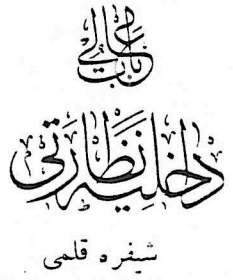 باب عالی
داخلیه نظارتی
شیفره قلمی